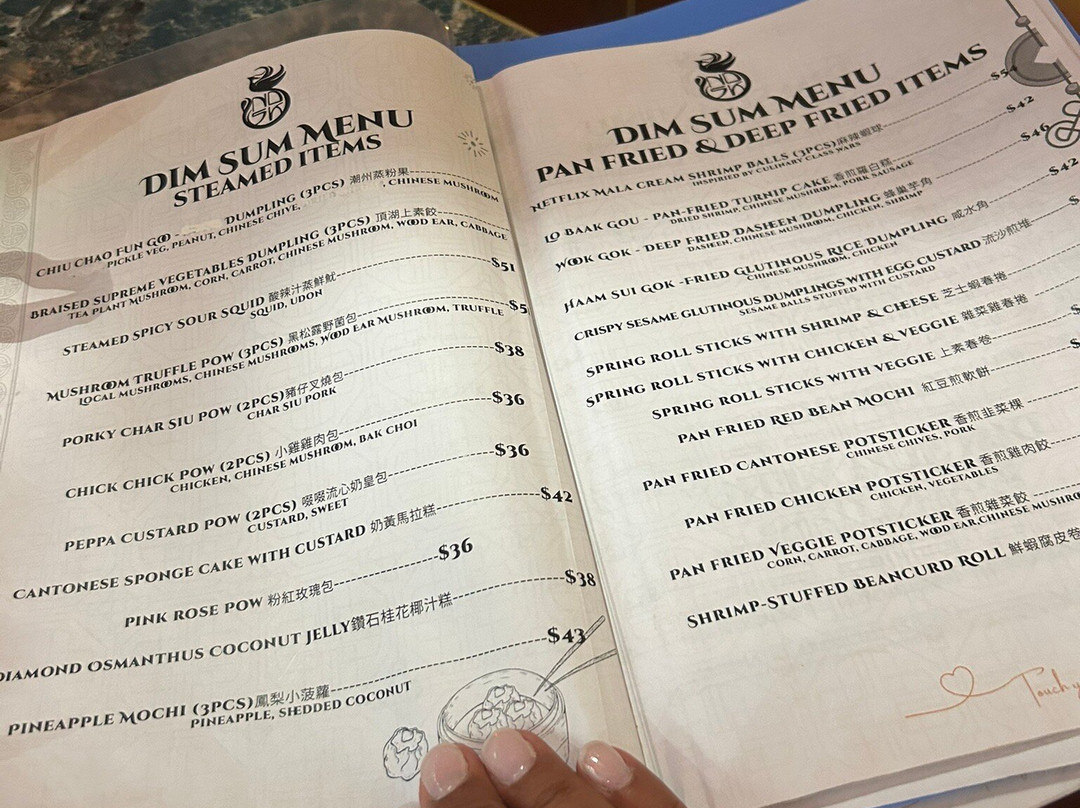 DIM SUM MENU
STEAMED ITEMS
CHIU CHAO FUN GOO - DUMPLING (3PCS) 潮州蒸粉果
PICKLE VEG, PEANUT, CHINESE CHIVE, , CHINESE MUSHROOM
BRAISED SUPREME VEGETABLES DUMPLING (3PCS) 頂湖上素餃
TEA PLANT MUSHROOM, CORN, CARROT, CHINESE MUSHROOM, WOOD EAR, CABBAGE
STEAMED SPICY SOUR SQUID 酸辣汁蒸鮮魷 $51
SQUID, UDON
MUSHROOM TRUFFLE POW (3PCS) 黑松露野菌包
LOCAL MUSHROOMS, CHINESE MUSHROOMS, WOOD EAR MUSHROOM, TRUFFLE
PORKY CHAR SIU POW (2PCS) 豬仔叉燒包 $38
CHAR SIU PORK
CHICK CHICK POW (2PCS) 小雞雞肉包 $36
CHICKEN, CHINESE MUSHROOM, BAK CHOI
PEPPA CUSTARD POW (2PCS) 啜啜流心奶皇包 $36
CUSTARD, SWEET
CANTONESE SPONGE CAKE WITH CUSTARD 奶黃馬拉糕 $42
PINK ROSE POW 粉紅玫瑰包 $36
DIAMOND OSMANTHUS COCONUT JELLY 鑽石桂花椰汁糕 $38
PINEAPPLE MOCHI (3PCS) 鳳梨小菠蘿 $43
PINEAPPLE, SHEDDED COCONUT
DIM SUM MENU
PAN FRIED & DEEP FRIED ITEMS
NETFLIX MALA CREAM SHRIMP BALLS (3PCS) 麻辣蝦球
INSPIRIED BY CULINARY CLASS WARS
LO BAAK GOU - PAN-FRIED TURNIP CAKE 香煎羅白糕 $42
DRIED SHRIMP, CHINESE MUSHROOM, PORK SAUSAGE
WOOK GOK - DEEP FRIED DASHEEN DUMPLING 蜂巢芋角 $46
DASHEEN, CHINESE MUSHROOM, CHICKEN, SHRIMP
HAAM SUI GOK -FRIED GLUTINOUS RICE DUMPLING 咸水角 $42
CHINESE MUSHROOM, CHICKEN
CRISPY SESAME GLUTINOUS DUMPLINGS WITH EGG CUSTARD 流沙煎堆
SESAME BALLS STUFFED WITH CUSTARD
SPRING ROLL STICKS WITH SHRIMP & CHEESE 芝士蝦春捲
SPRING ROLL STICKS WITH CHICKEN & VEGGIE 雜菜雞春捲
SPRING ROLL STICKS WITH VEGGIE 上素春卷
PAN FRIED RED BEAN MOCHI 紅豆煎軟餅
PAN FRIED CANTONESE POTSTICKER 香煎韭菜粿
CHINESE CHIVES, PORK
PAN FRIED CHICKEN POTSTICKER 香煎雞肉餃
CHICKEN, VEGETABLES
PAN FRIED VEGGIE POTSTICKER 香煎雜菜餃
CORN, CARROT, CABBAGE, WOOD EAR, CHINESE
SHRIMP-STUFFED BEANCURD ROLL 鮮蝦腐皮卷
Touch